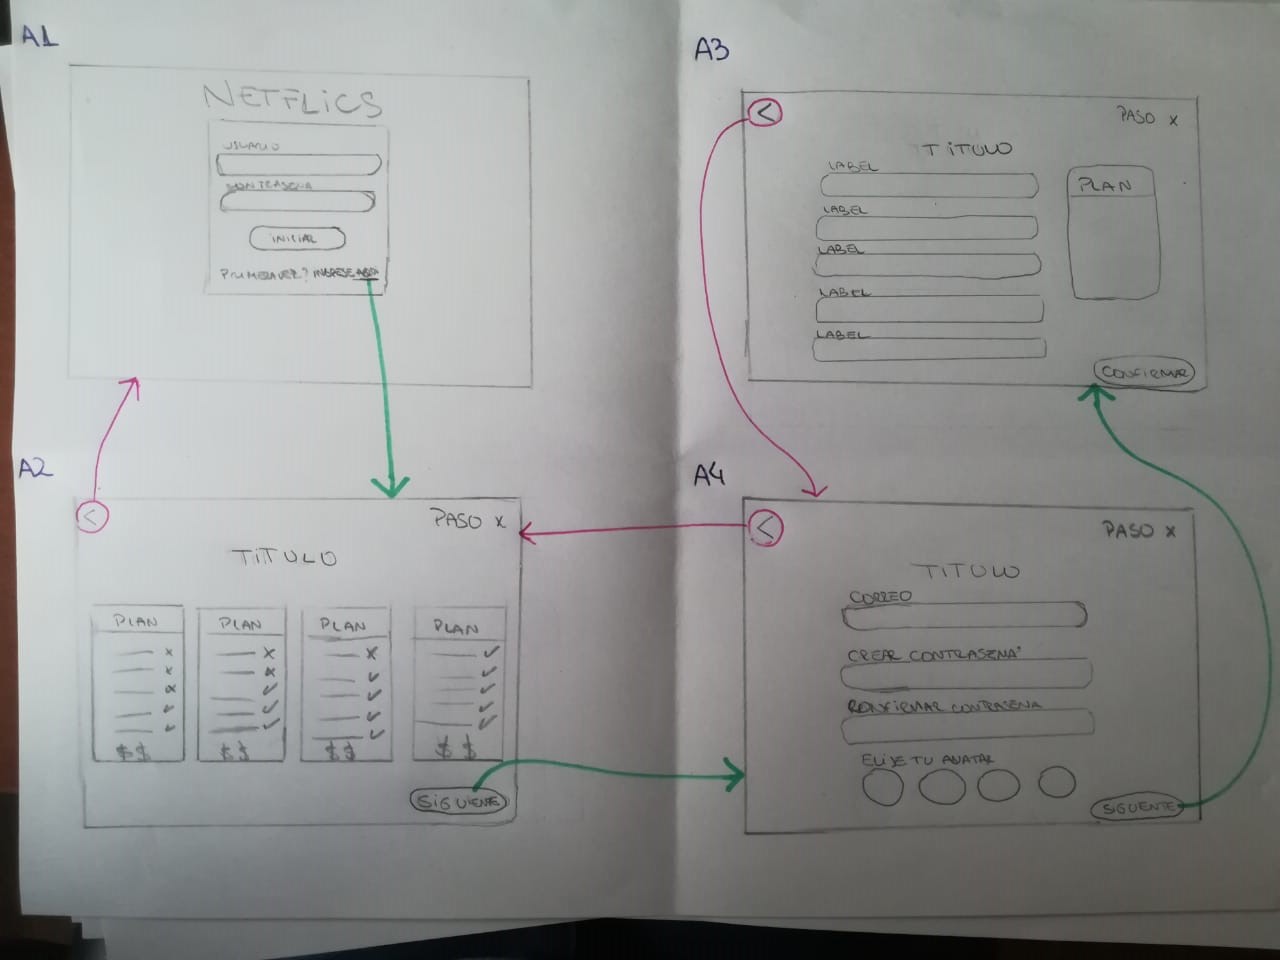 A1
NETFLICS
USUARIO
CONTRASEÑA
INICIAR
PRIMERA VEZ? INGRESE AQUI
A2
<
PASO X
TITULO
PLAN
x
x
x
✓
✓
$$
PLAN
x
x
✓
✓
✓
$$
PLAN
x
✓
✓
✓
✓
$$
PLAN
✓
✓
✓
✓
✓
$$
SIGUIENTE
A3
<
PASO X
TITULO
LABEL
LABEL
LABEL
LABEL
LABEL
PLAN
CONFIRMAR
A4
<
PASO X
TITULO
CORREO
CREAR CONTRASENA
CONFIRMAR CONTRASENA
ELIJE TU AVATAR
SIGUENTE